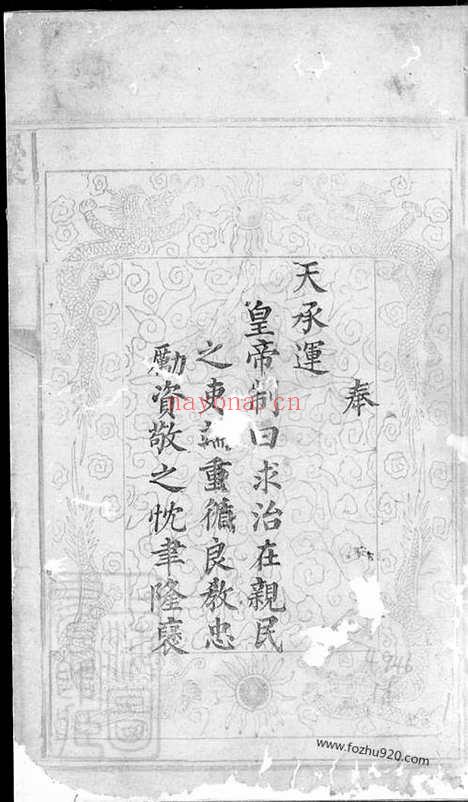 奉
天承運
皇帝制曰求治在親民
之吏端重循良教忠
勵資敬之忱聿隆褒
nayona.cn
4946
www.fozhu920.com